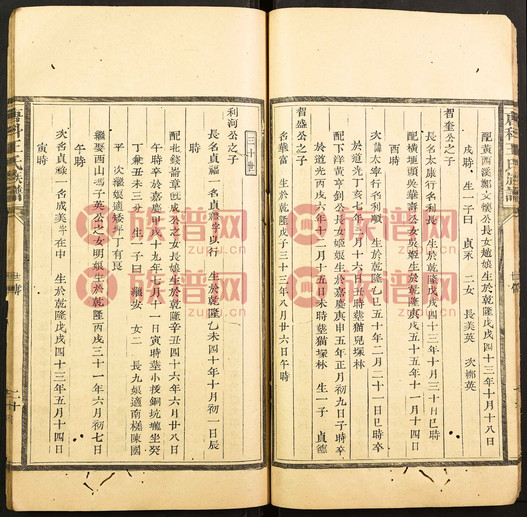 配黄西溪鄭文樂公長女趙娘生於乾隆戊戌四十三年十月十八日
戌時 生一子曰 貞永 二女 長美英 次鄉英
智奎公之子
長名太康行名利長 生於乾隆
配橫埂頭吳華壽公女吳姬生於乾隆庚戌五十五年十一月十
酉時
次名太寧行名利順 生於乾隆乙卯五十年二月二十一日巳時卒
於道光丁亥七年八月十六日丑時塟貓兒塚林
配下洋黃步釗公長女姬娘生於嘉慶庚申五年正月初九日子時卒
於道光丙戌六年十二月十五日未時塟貓塚林 生一子 貞德
智盛公之子
名華富 生於乾隆戊子三十三年八月廿六日午時
三十世
利洵公之子
長名貞福一名貞 行 生於乾隆乙未四十年十月初一日辰
配北錢崙章 成公之女長娘生於乾隆辛丑四十六年六月廿八日
午時卒於嘉慶 戌十九年七月十一日寅時塟小授銅坑壠坐癸
丁兼丑未三分 生一子曰 觀安 女二 長九娘適南槤陳國
平 次繼娘適矮坪丁有良
繼娶西山馮子英公之女明娘生於乾隆丙戌三十一年六月初七日
午時
次名貞祿一名成美字在中 生於乾隆戊戌四十三年五月十四日
寅時
唐科王氏族譜
世傳
二十
族普网
zupu.cn